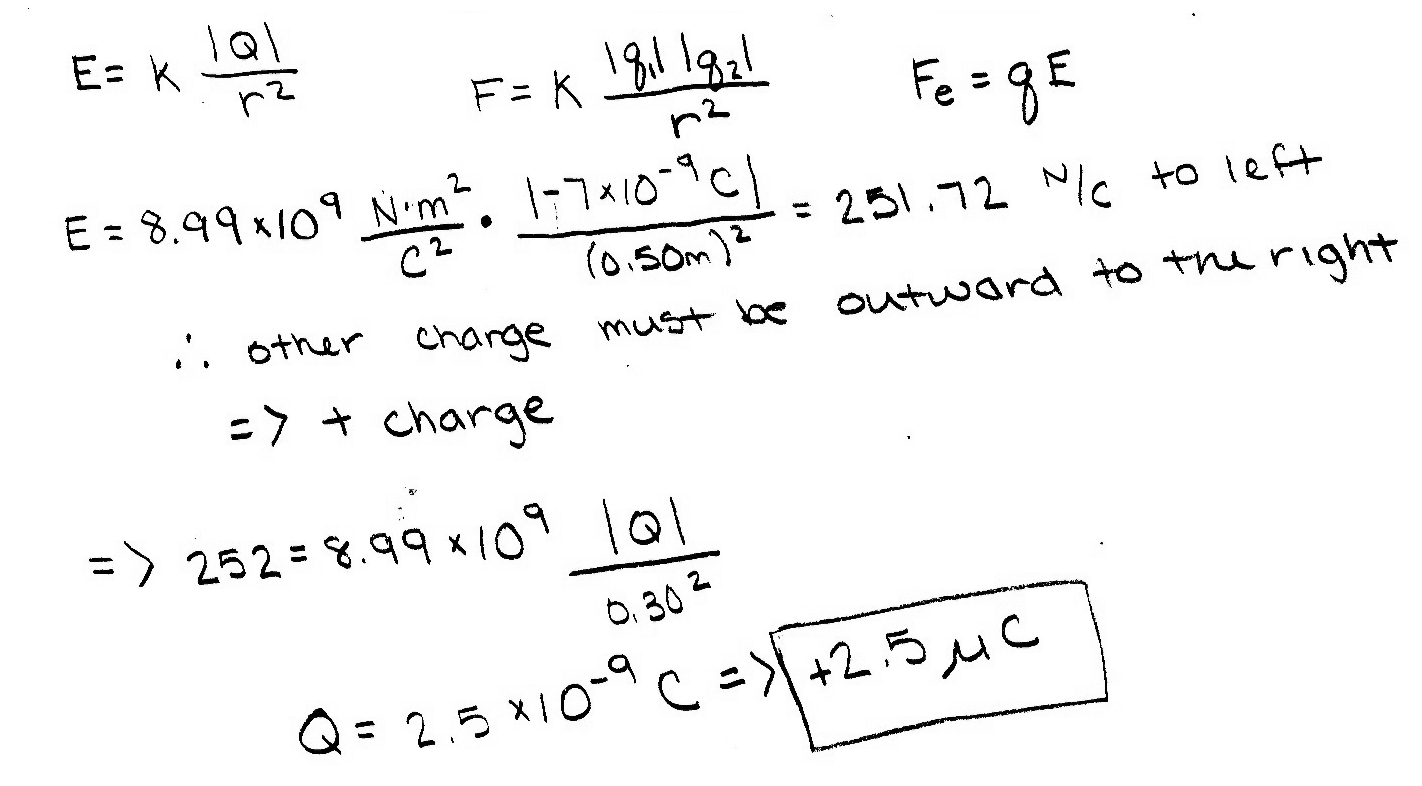 E = k |Q| / r²   F = k |q₁| |q₂| / r²   Fe = qE
E = 8.99 × 10⁹ N·m² / C² · |-7 × 10⁻⁹ C| / (0.50m)² = 251.72 N/C to left
∴ other charge must be outward to the right
=> + charge
=> 252 = 8.99 × 10⁹ |Q| / 0.30²
Q = 2.5 × 10⁻⁹ C => +2.5 μC